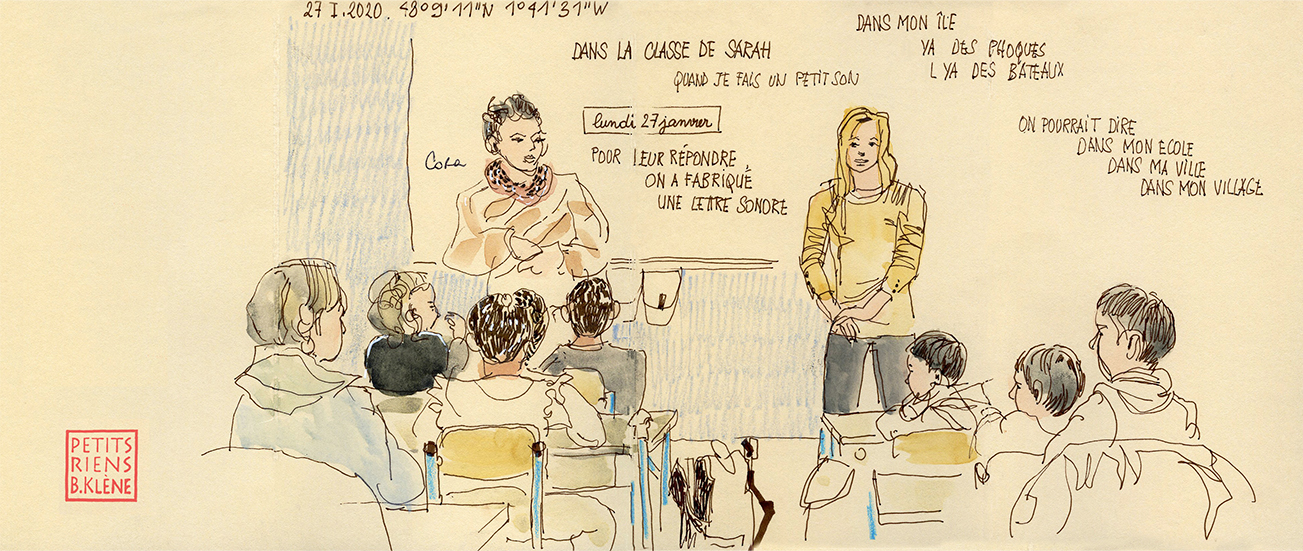 27 I. 2020. 48°9'11"N 1°41'31"W
DANS LA CLASSE DE SARAH
QUAND JE FAIS UN PETIT SON
lundi 27 janvier
POUR LEUR RÉPONDRE,
ON A FABRIQUÉ
UNE LETTRE SONORE
DANS MON ÎLE
YA DES PHOQUES
L YA DES BATEAUX
ON POURRAIT DIRE
DANS MON ECOLE
DANS MA VILLE
DANS MON VILLAGE
Cora
PETITS
RIENS
B.KLÈNE